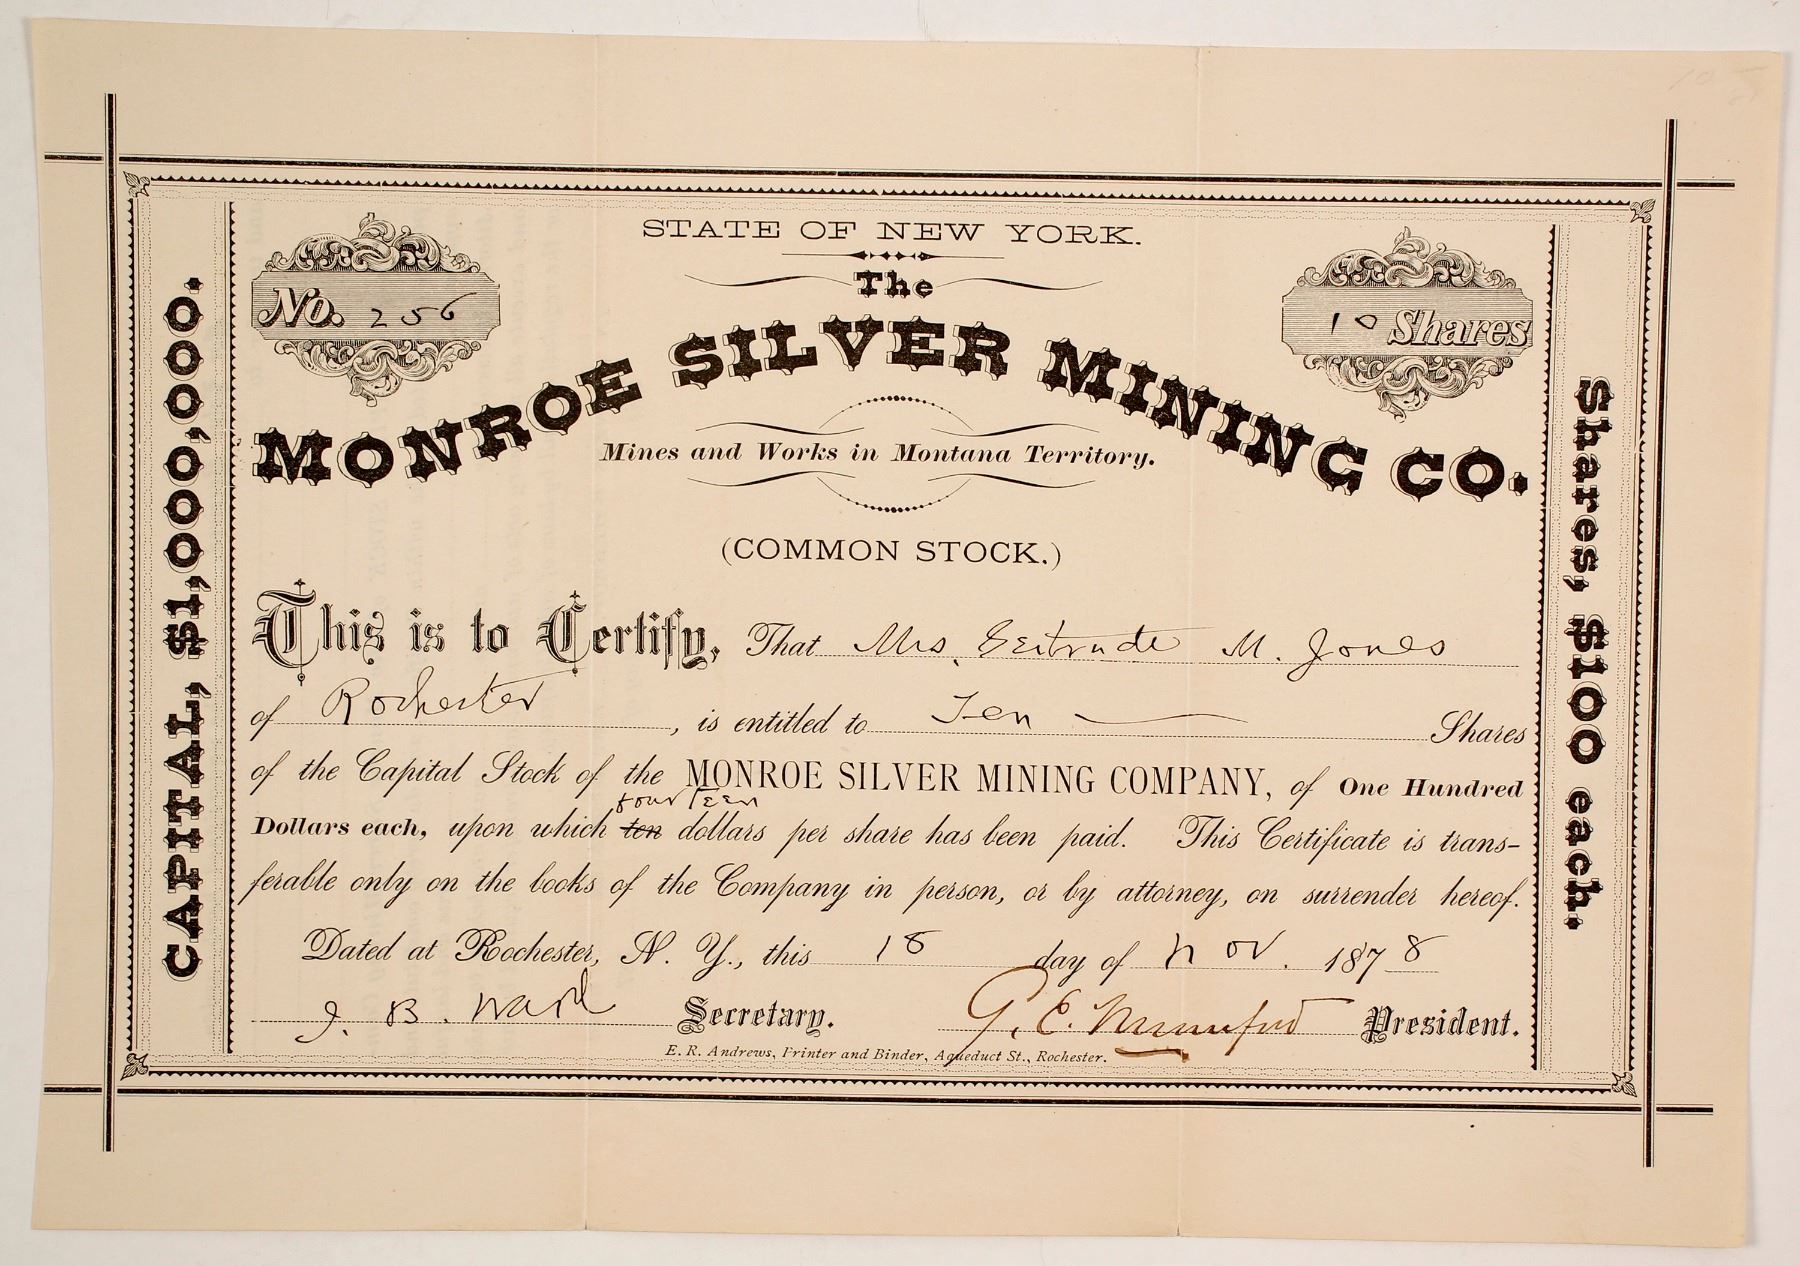 STATE OF NEW YORK.
The
No. 256
10 Shares
MONROE SILVER MINING CO.
Mines and Works in Montana Territory.
(COMMON STOCK.)
CAPITAL, $1,000,000.
Shares, $100 each.
This is to Certify, That Mrs. Gertrude M. Jones
of Rochester, is entitled to Ten Shares
of the Capital Stock of the MONROE SILVER MINING COMPANY, of One Hundred
fourteen
Dollars each, upon which ten dollars per share has been paid. This Certificate is trans-
ferable only on the books of the Company in person, or by attorney, on surrender hereof.
Dated at Rochester, N. Y., this 18 day of Nov. 1878
J. B. Ward Secretary. G. E. Mumford President.
E. R. Andrews, Printer and Binder, Aqueduct St., Rochester.